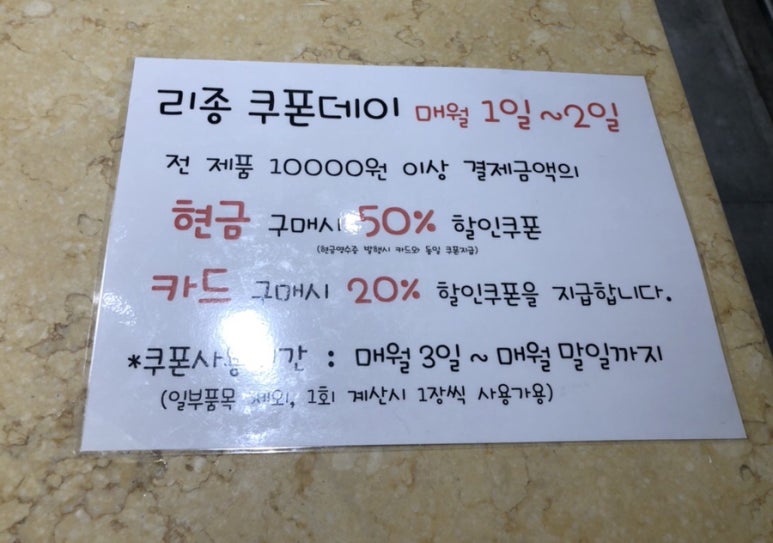 리종 쿠폰데이 매월 1일~2일
전 제품 10000원 이상 결제금액의
현금 구매시 50% 할인쿠폰
(현금영수증 발행시 카드와 동일 쿠폰지급)
카드 구매시 20% 할인쿠폰을 지급합니다.
*쿠폰사용기간 : 매월 3일 ~ 매월 말일까지
(일부품목 제외, 1회 계산시 1장씩 사용가용)